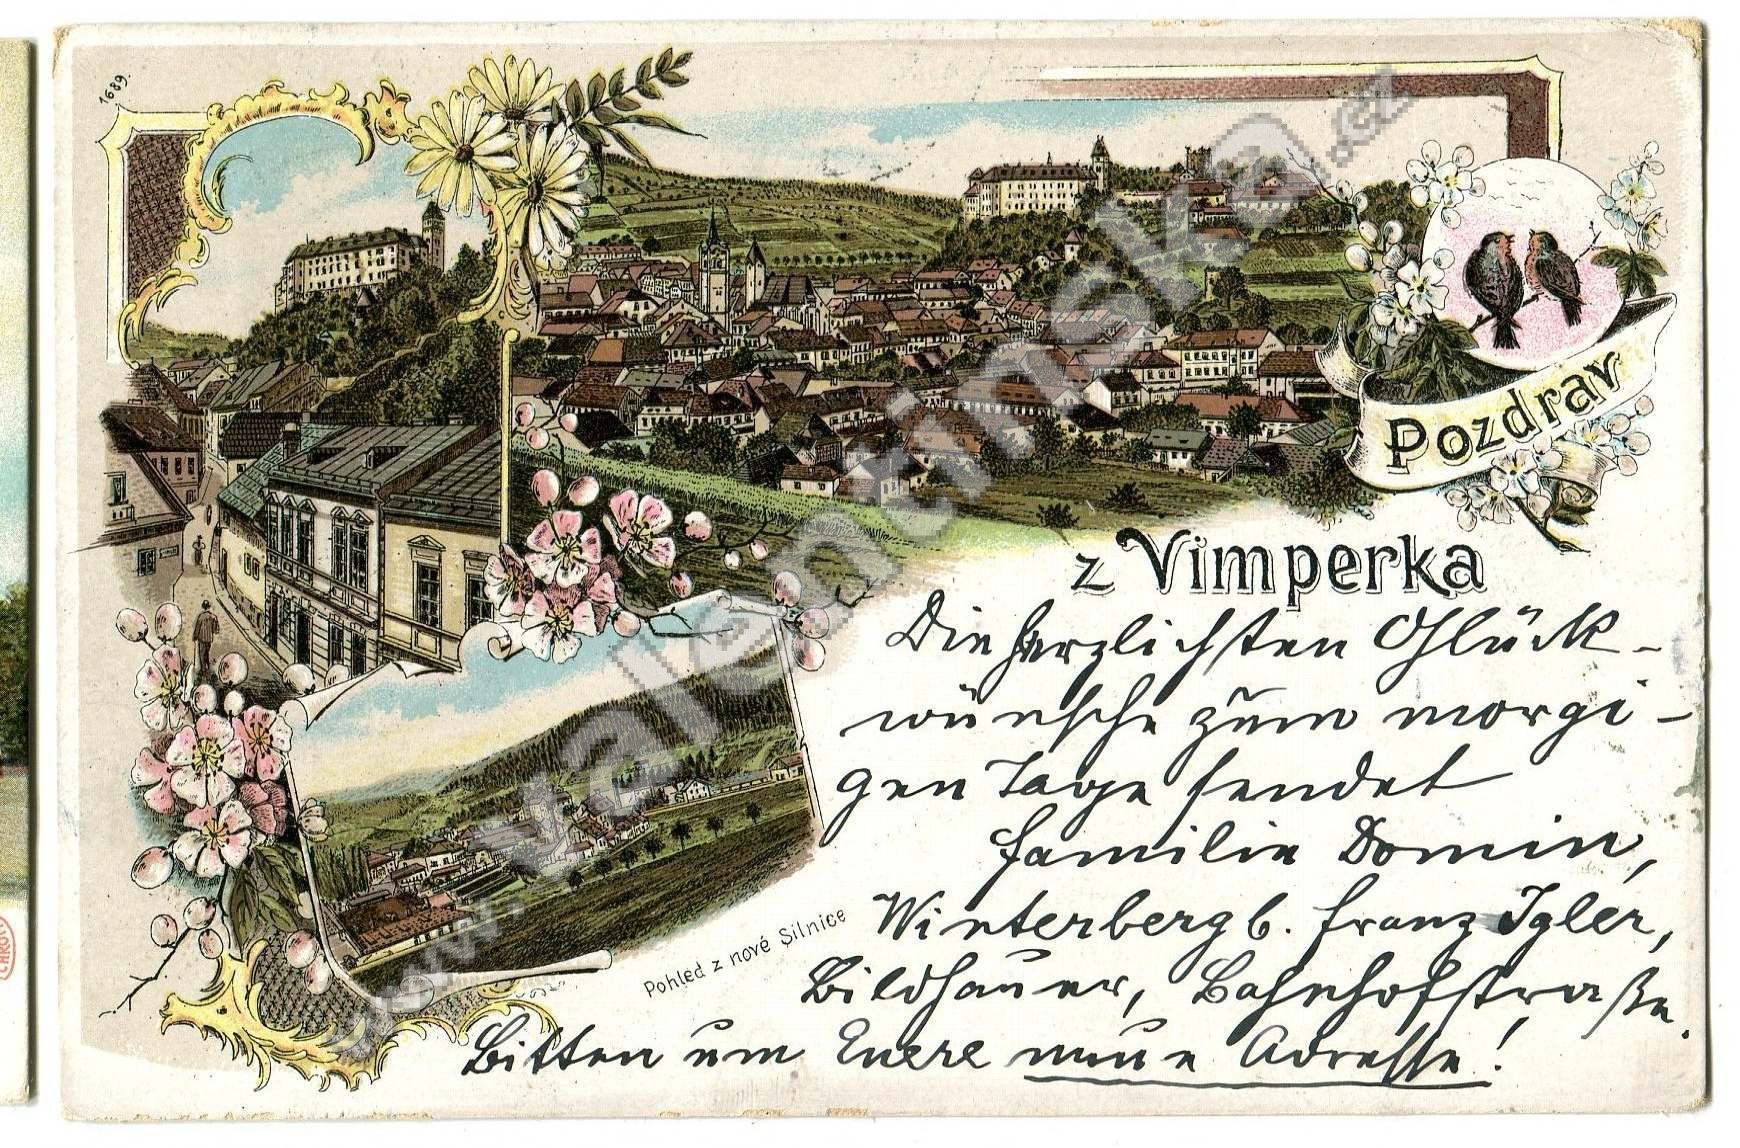 1689.
Pozdrav
z Vimperka
Die herzlichsten Glück-
wünsche zum morgi-
gen Tage sendet
Familie Domin,
Winterberg b. Franz Igler,
Bildhauer, Bahnhofstraße.
Bitten um Euere neue Adresse!
Pohled z nové Silnice
www.stalemcinska.cz